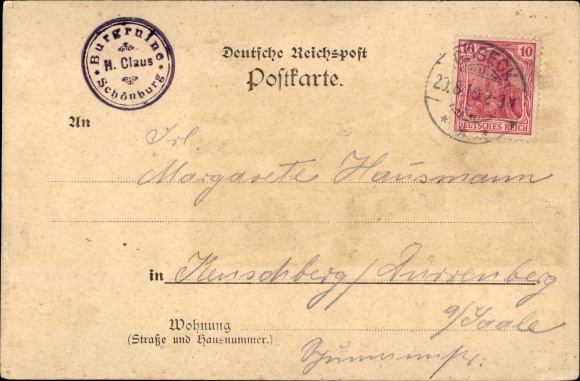 * Burgruine *
H. Claus
Schönburg
Deutsche Reichspost
Postkarte.
10 10
DEUTSCHES REICH
An
Frl.
Margarete Hausmann
in Keuschberg/Dürrenberg
Wohnung
(Straße und Hausnummer.)
a/Saale